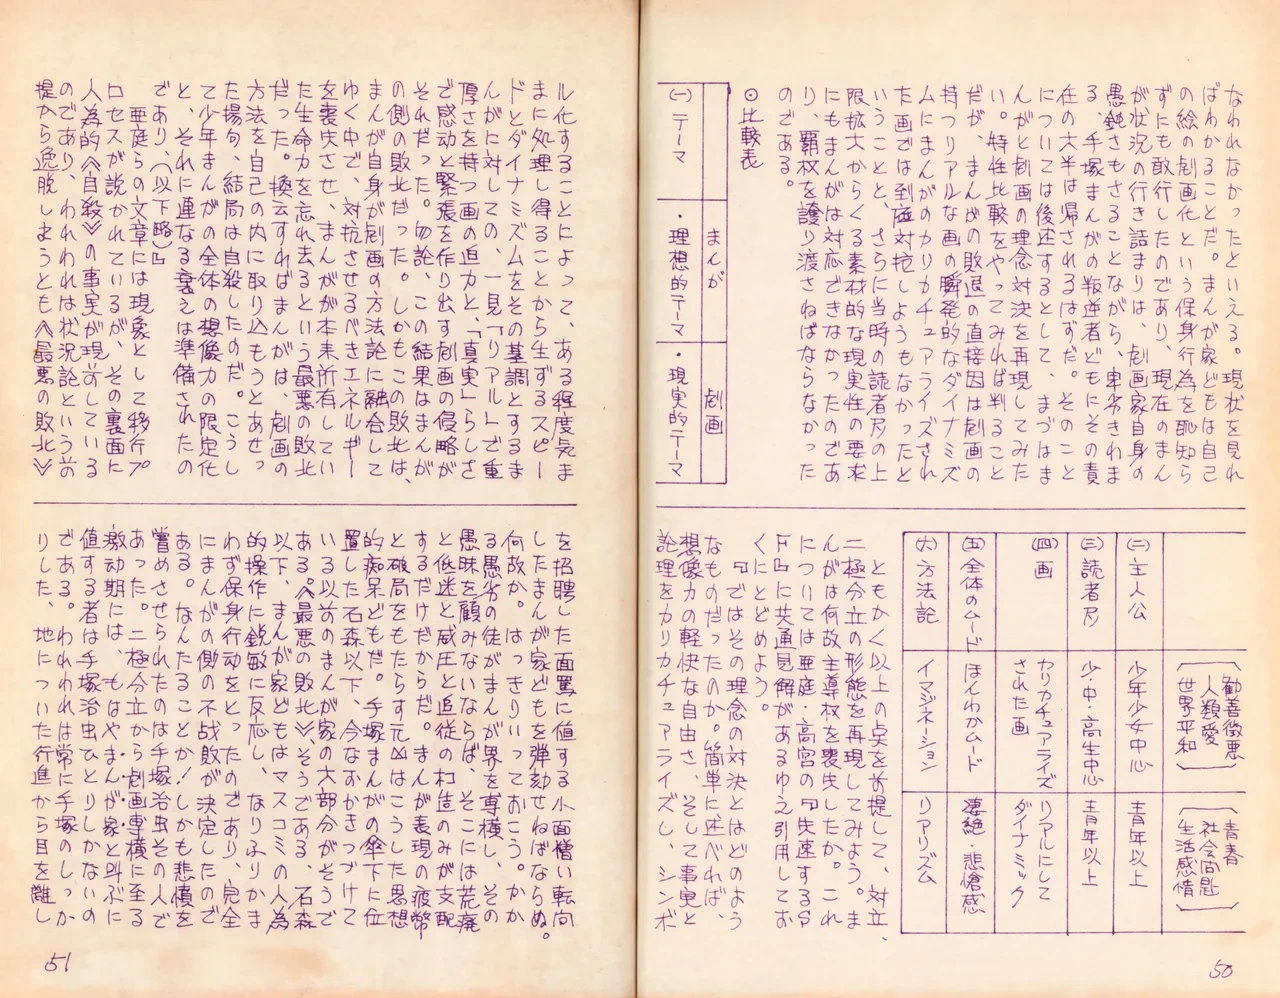 なわれなかったといえる。現状を見れ
ばわかることだ。まんが家どもは自己
の絵の劇画化という保身行為を恥知ら
ずにも敢行したのであり、現在のまん
が状況の行き詰まりは、劇画家自身の
愚鈍さもさることながら、卑劣きわま
る、手塚まんがの叛逆者どもにその責
任の大半は帰されるはずだ。そのこと
については後述するとして、まづはま
んがと劇画の理念対決を再現してみた
い。特性比較をやってみれば判ること
だが、まんがの敗退の直接因は劇画の
持つリアルな画の瞬発的なダイナミズ
ムにまんがのカリカチュアライズされ
た画では到底対抗しようもなかったと
いうことと、さらに当時の読者層の上
限拡大からくる素材的な現実性の要求
にもまんがは対応できなかったのであ
り、覇权を譲り渡さねばならなかった
のである。
◎比較表
まんが
劇画
(一)テーマ
・理想的テーマ
・現実的テーマ
勧善徴悪
人類愛
世界平和
青春
社会問題
生活感情
(二)主人公
少年少女中心
青年以上
(三)読者層
少・中・高生中心
青年以上
(四)画
カリカチュアライズ
された画
リアルにして
ダイナミック
(五)全体のムード
ほんわかムード
凄絶・悲愴感
(六)方法論
イマジネーション
リアリズム
ともかく以上の点を前提して、対立、
二極分立の形態を再現してみよう。ま
んがは何故主導权を喪失したか。これ
については亜庭・高宮の『失速するS
F』に共通見解があるゆえ引用してお
くにとどめよう。
『ではその理念の対決とはどのよう
なものだったのか。簡単に述べれば、
想像力の軽快な自由さ、そして事実と
論理をカリカチュアライズし、シンボ
50
ル化することによって、ある程度気ま
まに処理し得ることから生ずるスピー
ドとダイナミズムをその基調とするま
んがに対しての、一見「リアル」で重
厚さを持つ画の迫力と、「真実」らしさ
で感動と緊張を作り出す劇画の侵略が
それだった。勿論、この結果はまんが
の側の敗北だった。しかもこの敗北は、
まんが自身が劇画の方法論に融合して
ゆく中で、対抗させるべきエネルギー
を喪失させ、まんがが本来所有してい
た生命力を忘れ去るという最悪の敗北
だった。換言すればまんがは、劇画の
方法を自己の内に取り込もうとあせっ
た揚句、結局は自殺したのだ。こうし
て少年まんがの全体の想像力の限定化
と、それに連なる衰えは準備されたの
であり、(以下略)』
亜庭らの文章には現象として移行プ
ロセスが説かれているが、その裏面に
人為的《自殺》の事実が現前している
のであり、われわれは状況論という前
提から逸脱しようとも《最悪の敗北》
を招聘した面罵に値する小面憎い転向
したまんが家どもを弾劾せねばならぬ。
何故か。はっきりいっておこう。かか
る愚劣の徒がまんが界を専横し、その
愚昧を顧みないならば、そこには荒廃
と低迷と威圧と追従の构造のみが支配
するだけだからだ。まんが表現の疲弊
と破局をもたらす元凶はこうした思想
的痴呆どもだ。手塚まんがの傘下に位
置した石森以下、今なおかきつづけて
いる以前のまんが家の大部分がそうで
ある。《最悪の敗北》、そうである、石森
以下、まんが家どもはマスコミの人為
的操作に鋭敏に反応し、なりふりかま
わず保身行動をとったのであり、完全
にまんがの側の不战敗が決定したので
ある。なんたることか!しかも悲憤を
嘗めさせられたのは手塚治虫その人で
あった。二極分立から劇画専横に至る
激動期には、もはやまんが家と叫ぶに
値する者は手塚治虫ひとりしかないの
である。われわれは常に手塚のしっか
りした、地についた行進から目を離し
51